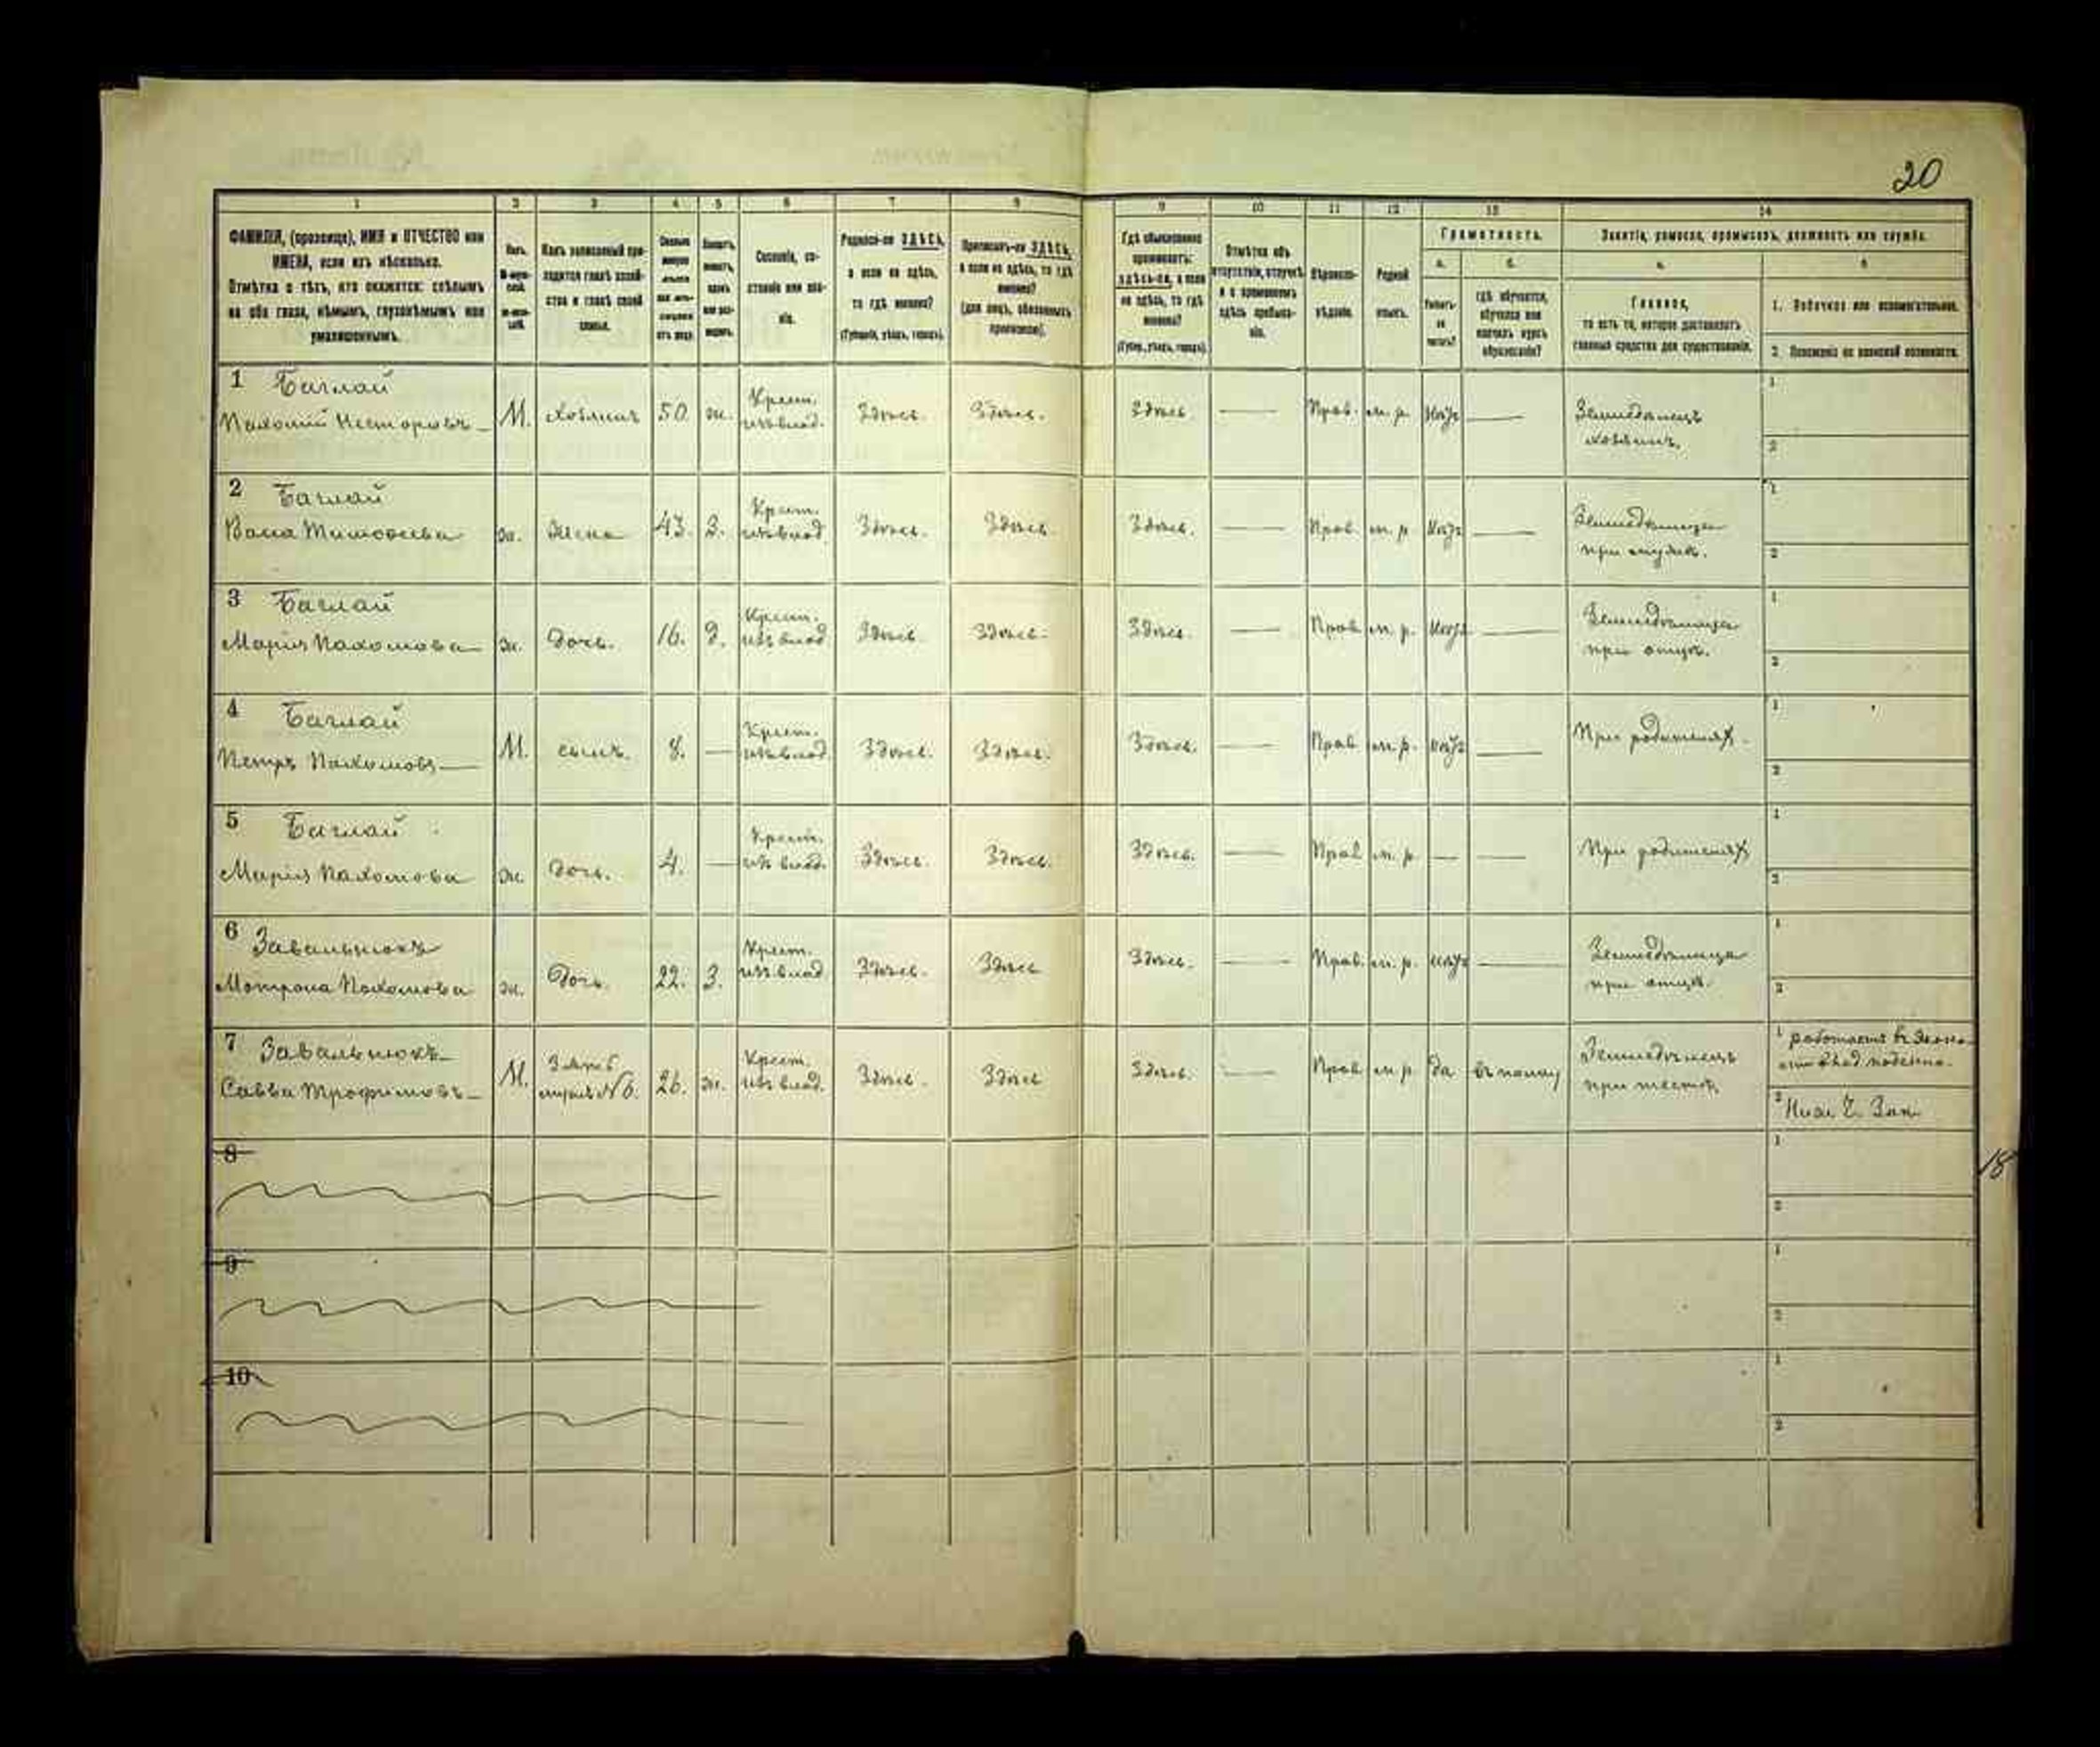 20
1 2 3 4 5 6 7 8 9 10 11 12 13 14
ФАМИЛІЯ, (прозвище), ИМЯ и ОТЧЕСТВО или
ИМЕНА, если ихъ нѣсколько.
Отмѣтка о тѣхъ, кто окажется: слѣпымъ
на оба глаза, нѣмымъ, глухонѣмымъ или
умалишеннымъ.
Полъ.
М-муж-
ской.
Ж-жен-
скій.
Какъ записанный при-
ходится главѣ хозяй-
ства и главѣ своей
семьи.
Сколько
минуло
лѣтъ
отъ роду.
Холостъ,
женатъ,
вдовъ
или раз-
веденъ.
Сословіе, со-
стояніе или зва-
ніе.
Родился-ли ЗДѢСЬ,
а если не здѣсь,
то гдѣ именно?
(Губернія, уѣздъ, городъ).
Приписанъ-ли ЗДѢСЬ,
а если не здѣсь, то гдѣ
именно?
(для лицъ, обязанныхъ
припискою).
Гдѣ обыкновенно
проживаетъ:
здѣсь-ли, а если
не здѣсь, то гдѣ
именно?
(Губер., уѣздъ, городъ).
Отмѣтка объ
отсутствіи, отлучкѣ
и о временномъ
здѣсь пребыва-
ніи.
Вѣроиспо-
вѣданіе.
Родной
языкъ.
Грамотность.
а.
Умѣетъ-
ли
читать?
б.
гдѣ обучается,
обучался или
кончилъ курсъ
образованія?
Занятіе, ремесло, промыселъ, должность или служба.
а.
Главное,
то есть то, которое доставляетъ
главныя средства для существованія.
б
1. Побочное или вспомогательное.
2. Положеніе по воинской повинности.
1 Баглай
Пахомій Несторовъ М. хозяинъ 50. ж. Крест. изъ влад. Здѣсь. Здѣсь. Здѣсь — Прав. м. р. нѣтъ — Земледѣлецъ хозяинъ. 1 2
2 Баглай
Тимофеева ж. жена 43. З. Крест. изъ влад. Здѣсь. Здѣсь Здѣсь. — Прав. м. р нѣтъ — Земледѣлица при мужѣ. 1 2
3 Баглай
Марія Пахомова ж. дочь. 16. д. Крест. изъ влад Здѣсь. Здѣсь. Здѣсь. — Прав м. р. нѣтъ — Земледѣлица при отцѣ. 1 2
4 Баглай
Петръ Пахомовъ М. сынъ. 8. — Крест. изъ влад. Здѣсь. Здѣсь. Здѣсь. — Прав м. р. нѣтъ — При родителях. 1 2
5 Баглай
Марія Пахомова ж. дочь. 4. — Крест. изъ влад. Здѣсь. Здѣсь. Здѣсь. — Прав м. р — — При родителях 1 2
6 Завальнюкъ
Мотрона Пахомова ж. дочь. 22. З. Крест. изъ влад Здѣсь. Здѣсь Здѣсь. — Прав. м. р. нѣтъ — Земледѣлица при отцѣ. 1 2
7 Завальнюкъ
Савва Трофимовъ М. Зять №6. 26. ж. Крест. изъ влад. Здѣсь. Здѣсь Здѣсь. — Прав м. р да Земледѣлецъ при тестѣ. 1 работаетъ въ эконо- 2
8 1 2
18
9 1 2
10 1 2